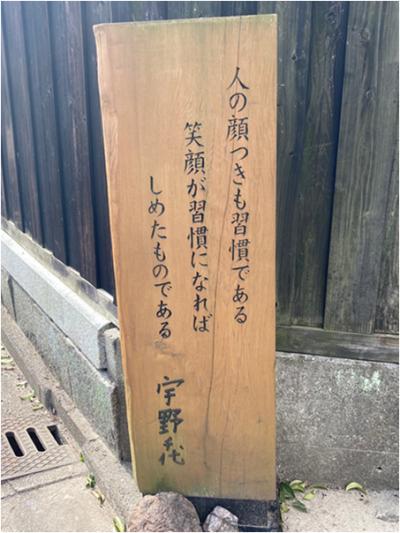 人の顔つきも習慣である
笑顔が習慣になれば
しめたものである
宇野千代